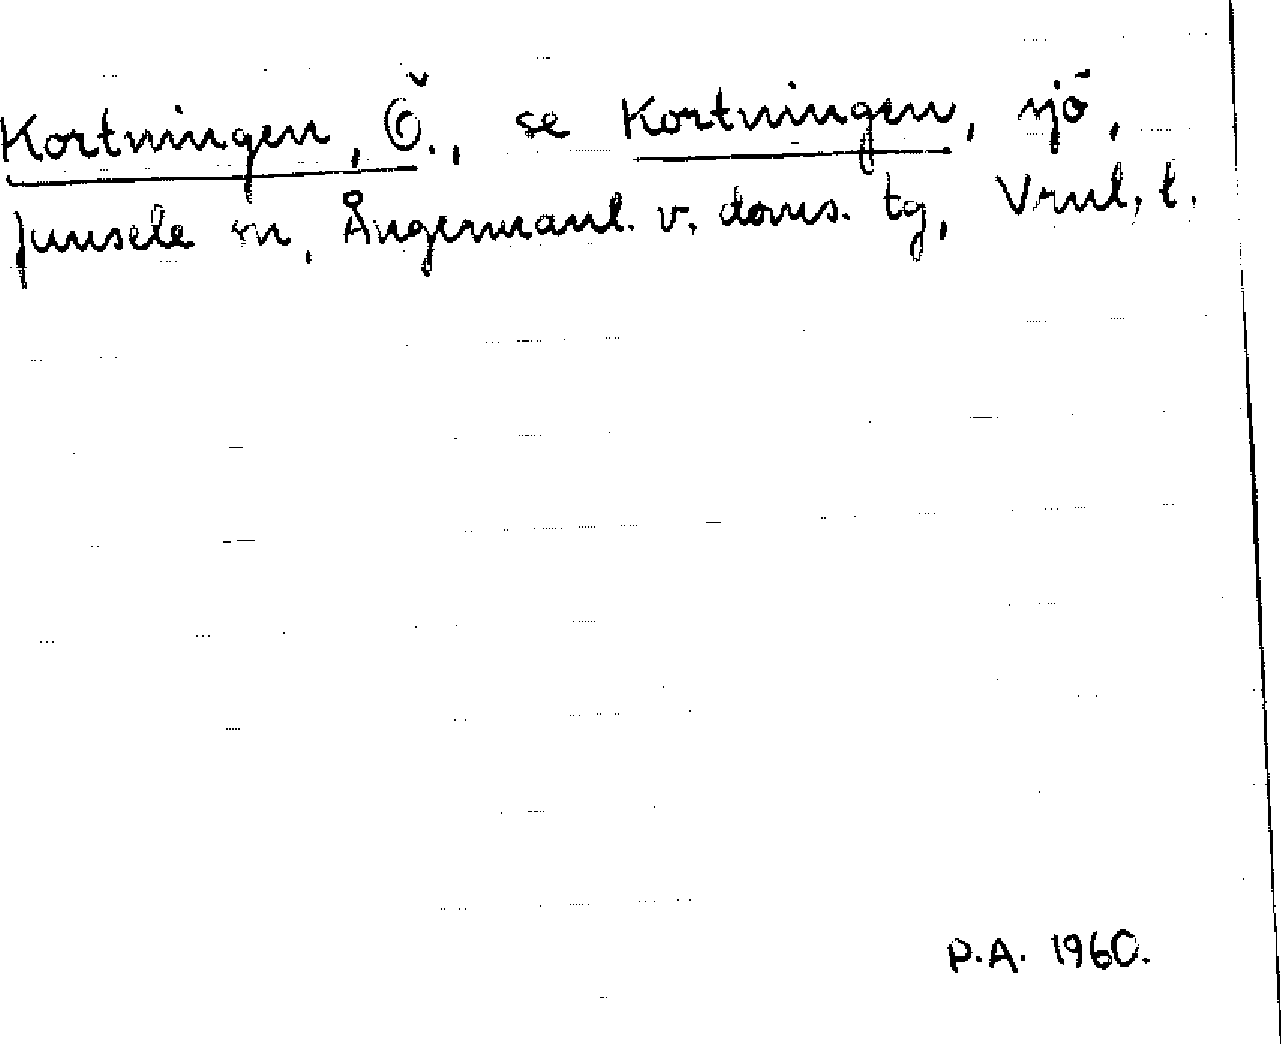 Kortningen, Ö., se Kortningen, sjö,
Junsele sn, Ångermanl. v. doms. tg, Vrnl. l.
P.A. 1960.